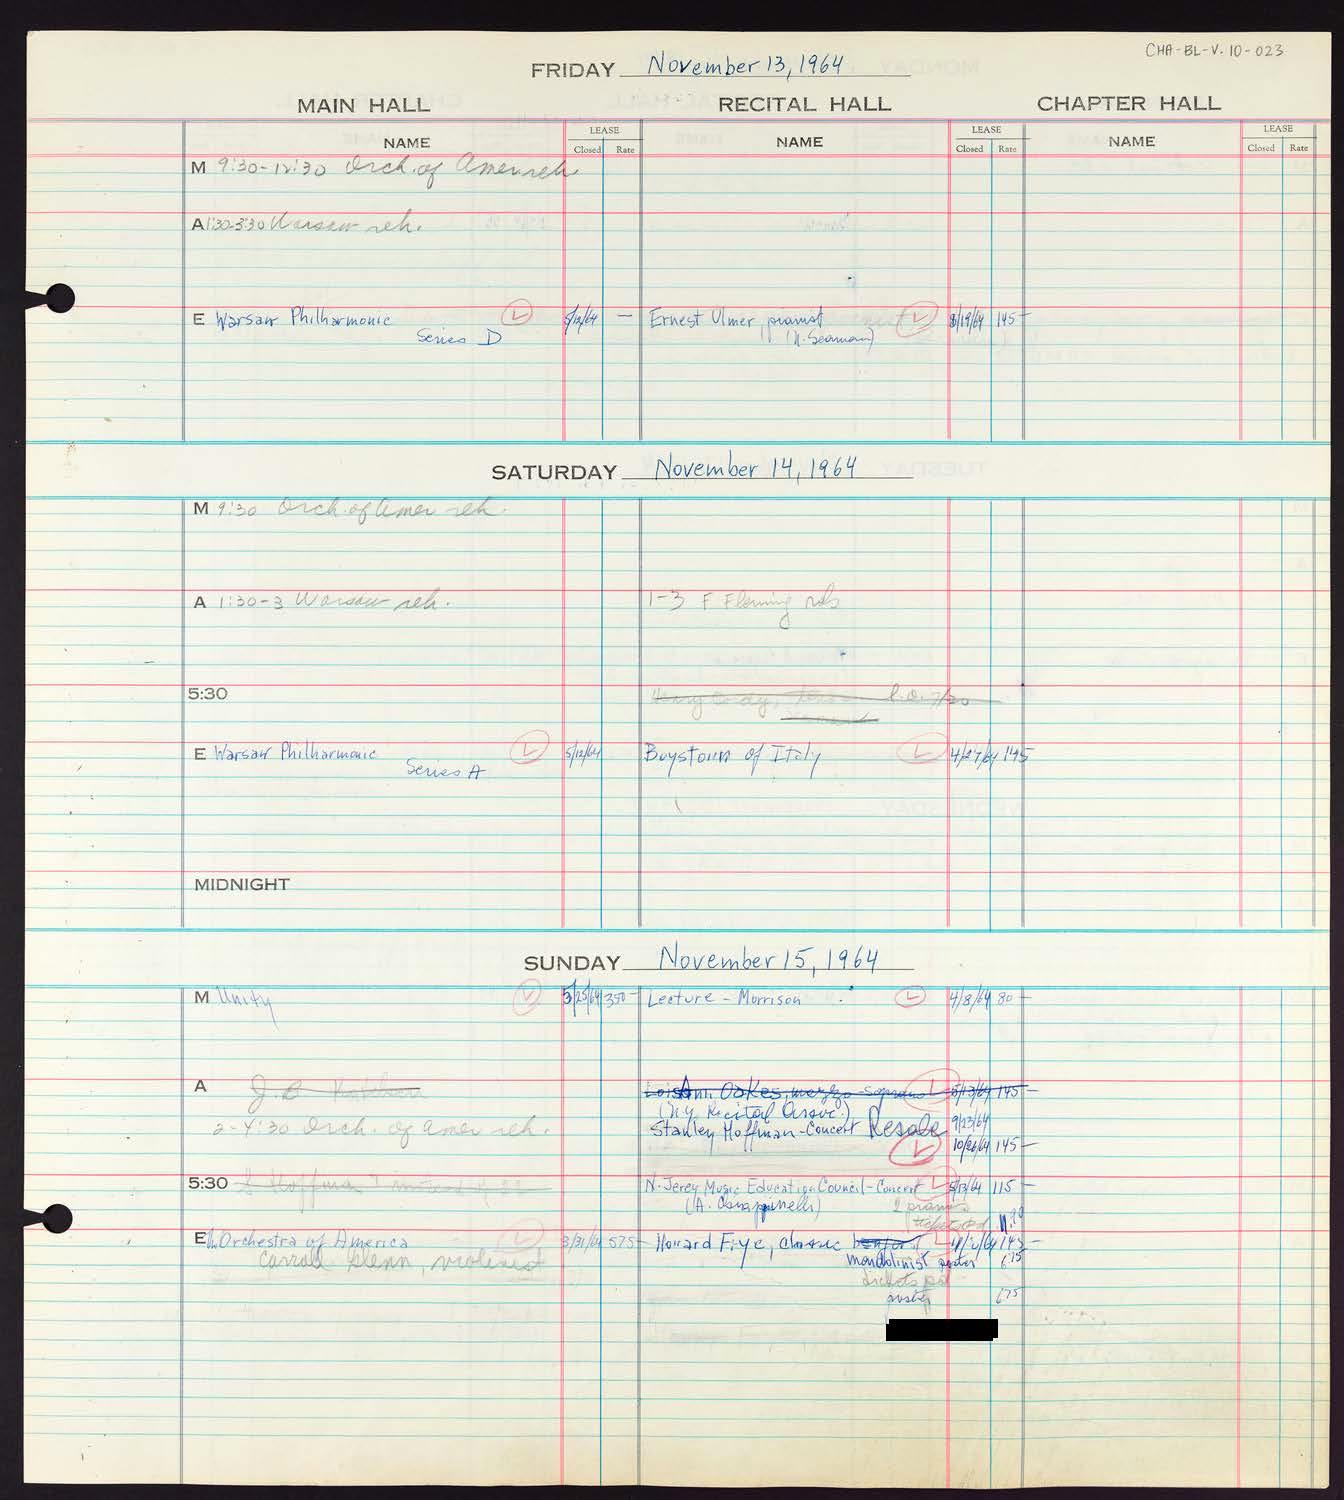 CHA-BL-V.10-023
FRIDAY November 13, 1964
MAIN HALL RECITAL HALL CHAPTER HALL
NAME LEASE Closed Rate NAME LEASE Closed Rate NAME LEASE Closed Rate
M 9:30-12:30 Orch. of Amer reh.
A 1:30-3:30 Warsaw reh.
E Warsaw Philharmonic L 5/12/64 — Ernest Ulmer, pianist L 8/19/64 145-
Series D (N. Seaman)
SATURDAY November 14, 1964
M 9:30 Orch. of Amer reh.
A 1:30-3 Warsaw reh. 1-3 F Fleming reh
5:30 Henry
E Warsaw Philharmonic L 5/12/64 Boystown of Italy L 4/27/64 145
Series A
MIDNIGHT
SUNDAY November 15, 1964
M Unity 3/25/64 350- Lecture - Morrison L 4/8/64 80-
A J. B. Lois Ann Oakes, mezzo soprano L 5/13/64 145-
(N.Y. Recital Assoc.) 9/23/64
2-4:30 Orch. of Amer reh. Stanley Hoffman-Concert Resale
L 10/26/64 145-
5:30 Hoffman N. Jercy Music Education Council-Concert L 5/13/64 115-
2 pianos
E The Orchestra of America L 3/31/64 575- Howard Frye, classic L 145-
Carroll Glenn, violinist mandolinist poster 6.75
tickets pd
poster 6.75